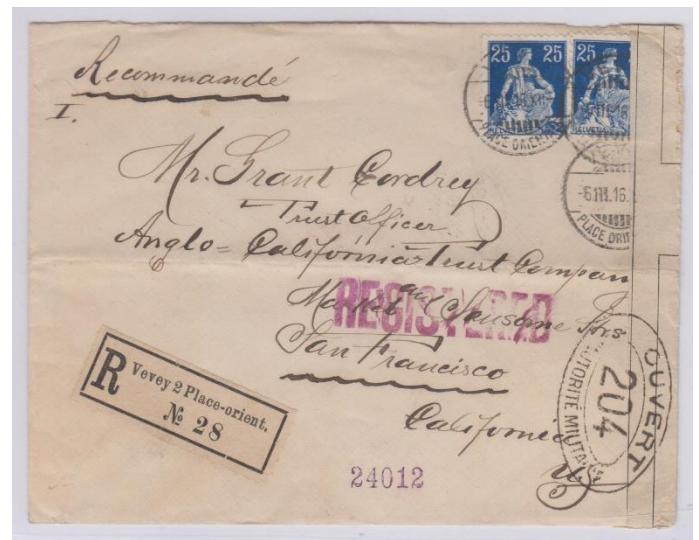 Recommandé
I.
25 25 25
HELVETIA HELVETIA
-6.III.16.
PLACE ORIENT
-6.III.16.
PLACE ORI
Mr. Grant Cordrey
Trust Officer
Anglo-California Trust Compan
Market and Sansome Sts
REGISTERED
San Francisco
California
R Vevey 2 Place-orient.
№ 28
24012
OUVERT
204
AUTORITÉ MILITAIRE